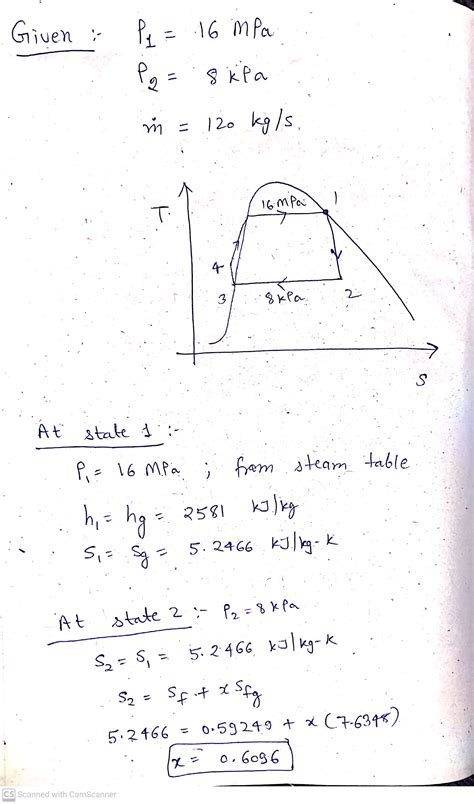 Given :- P1 = 16 MPa
P2 = 8 kPa
ṁ = 120 kg/s.
T.
16 MPa
1
4
3
8 kPa
2
S
At state 1 :-
P1 = 16 MPa ; from steam table
h1 = hg = 2581 kJ/kg
S1 = Sg = 5.2466 kJ/kg-K
At state 2 :- P2 = 8 kPa
S2 = S1 = 5.2466 kJ/kg-K
S2 = Sf + x Sfg
5.2466 = 0.59249 + x (7.6348)
x = 0.6096
CS Scanned with CamScanner